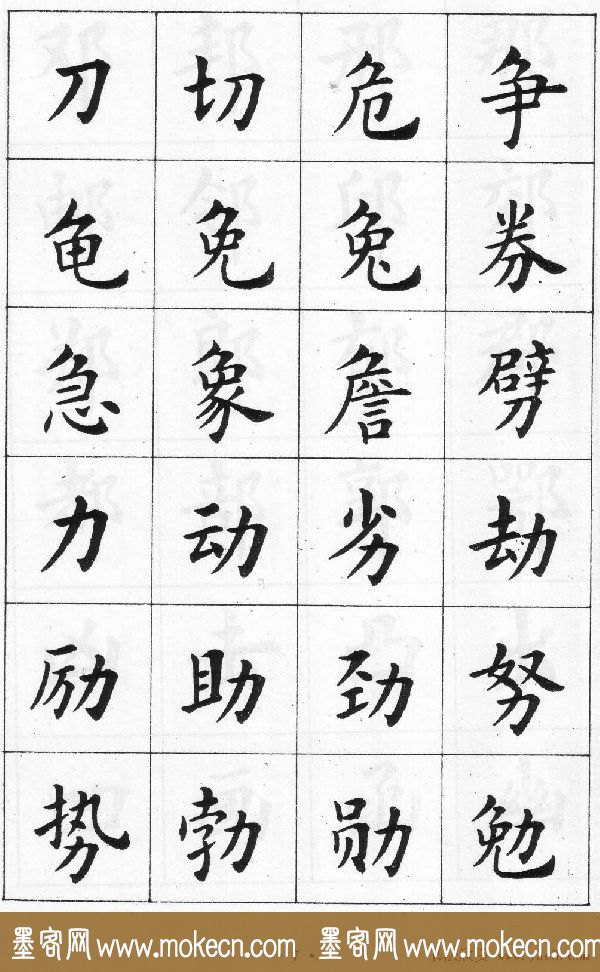 刀 切 危 争
龟 免 兔 券
急 象 詹 劈
力 动 劣 劫
励 助 劲 努
势 勃 勋 勉
墨客网 www.mokecn.com 墨客网 www.mokecn.com